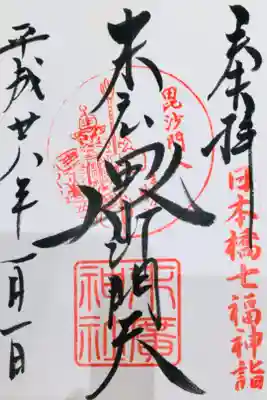 奉拝
日本橋七福神詣
毘沙門天
末広毘沙門天
末廣神社
平成廿八年一月一日